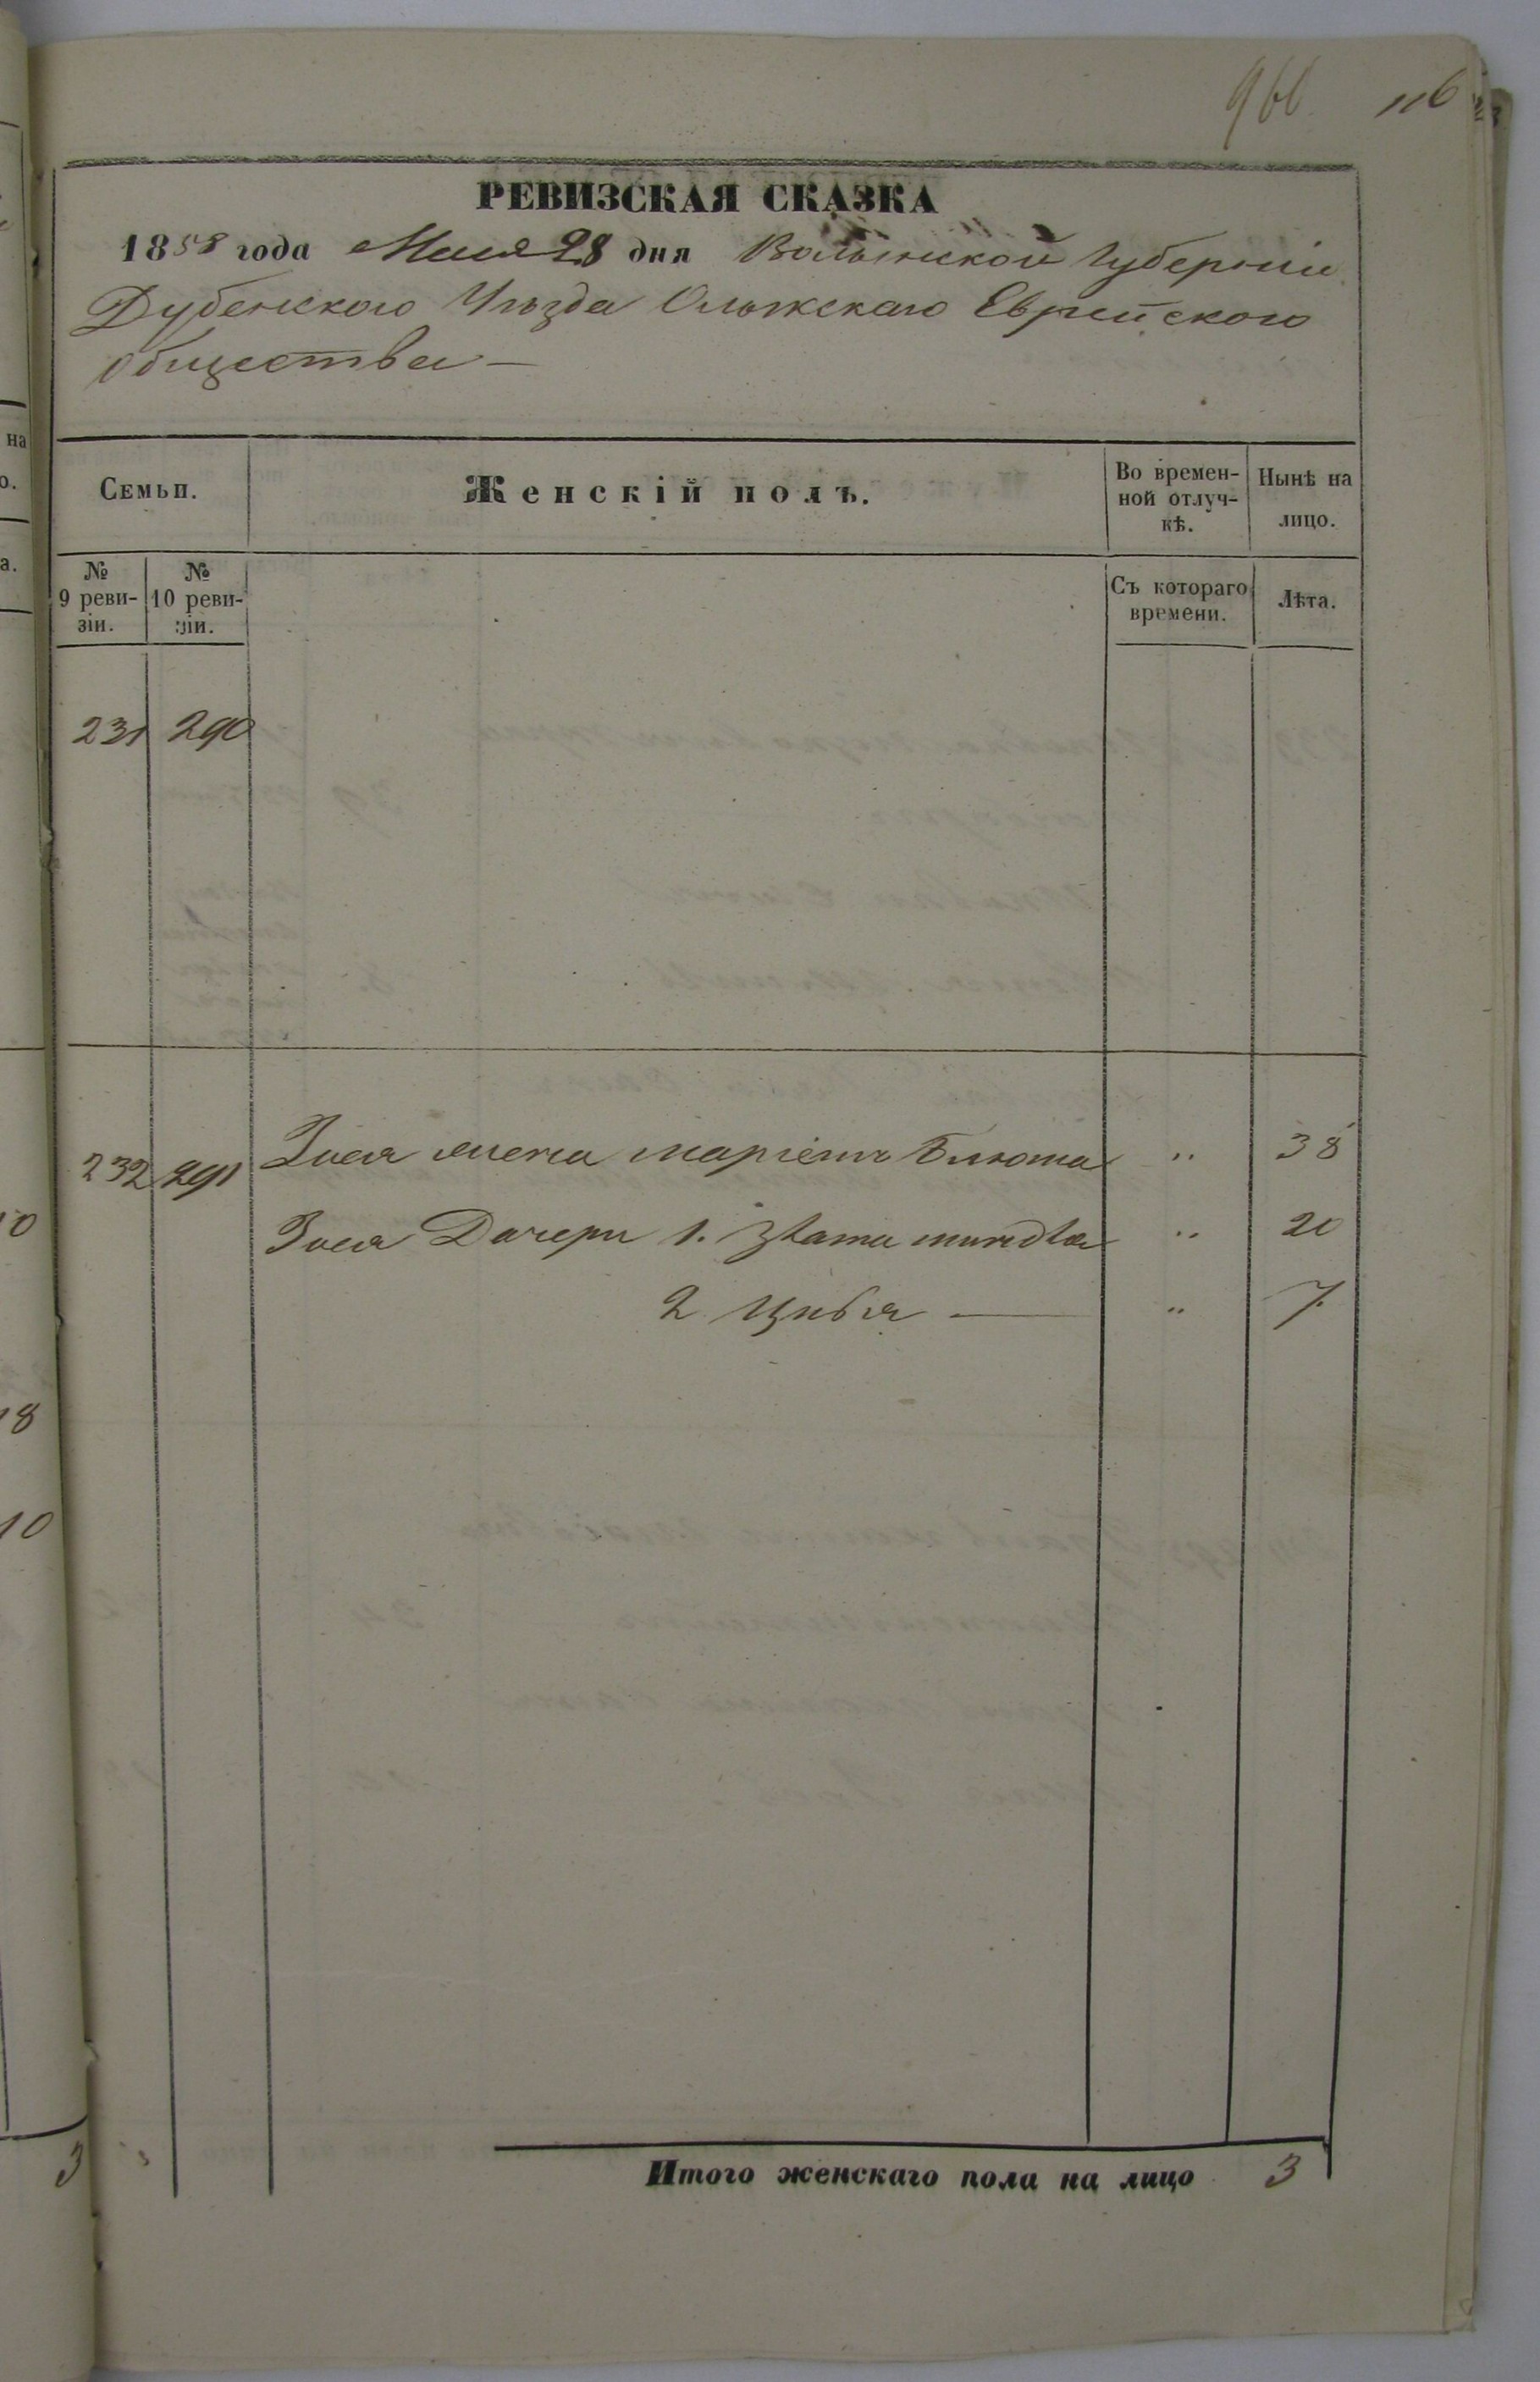 966 116
РЕВИЗСКАЯ СКАЗКА
1858 года Мая 28 дня Волынской Губерніи
Дубенскаго Уѣзда Олыкскаго Еврейского
общества —
на
о.
Семьи.
Женскій полъ.
Во времен-
ной отлуч-
кѣ.
Нынѣ на
лицо.
а.
№
9 реви-
зіи.
№
10 реви-
зіи.
Съ котораго
времени.
Лѣта.
231 290
232 291
жена Блюма " 38
Дочери 1. Злата " 20
2 Цивья — " 7.
10
18
10
3
Итого женскаго пола на лицо 3